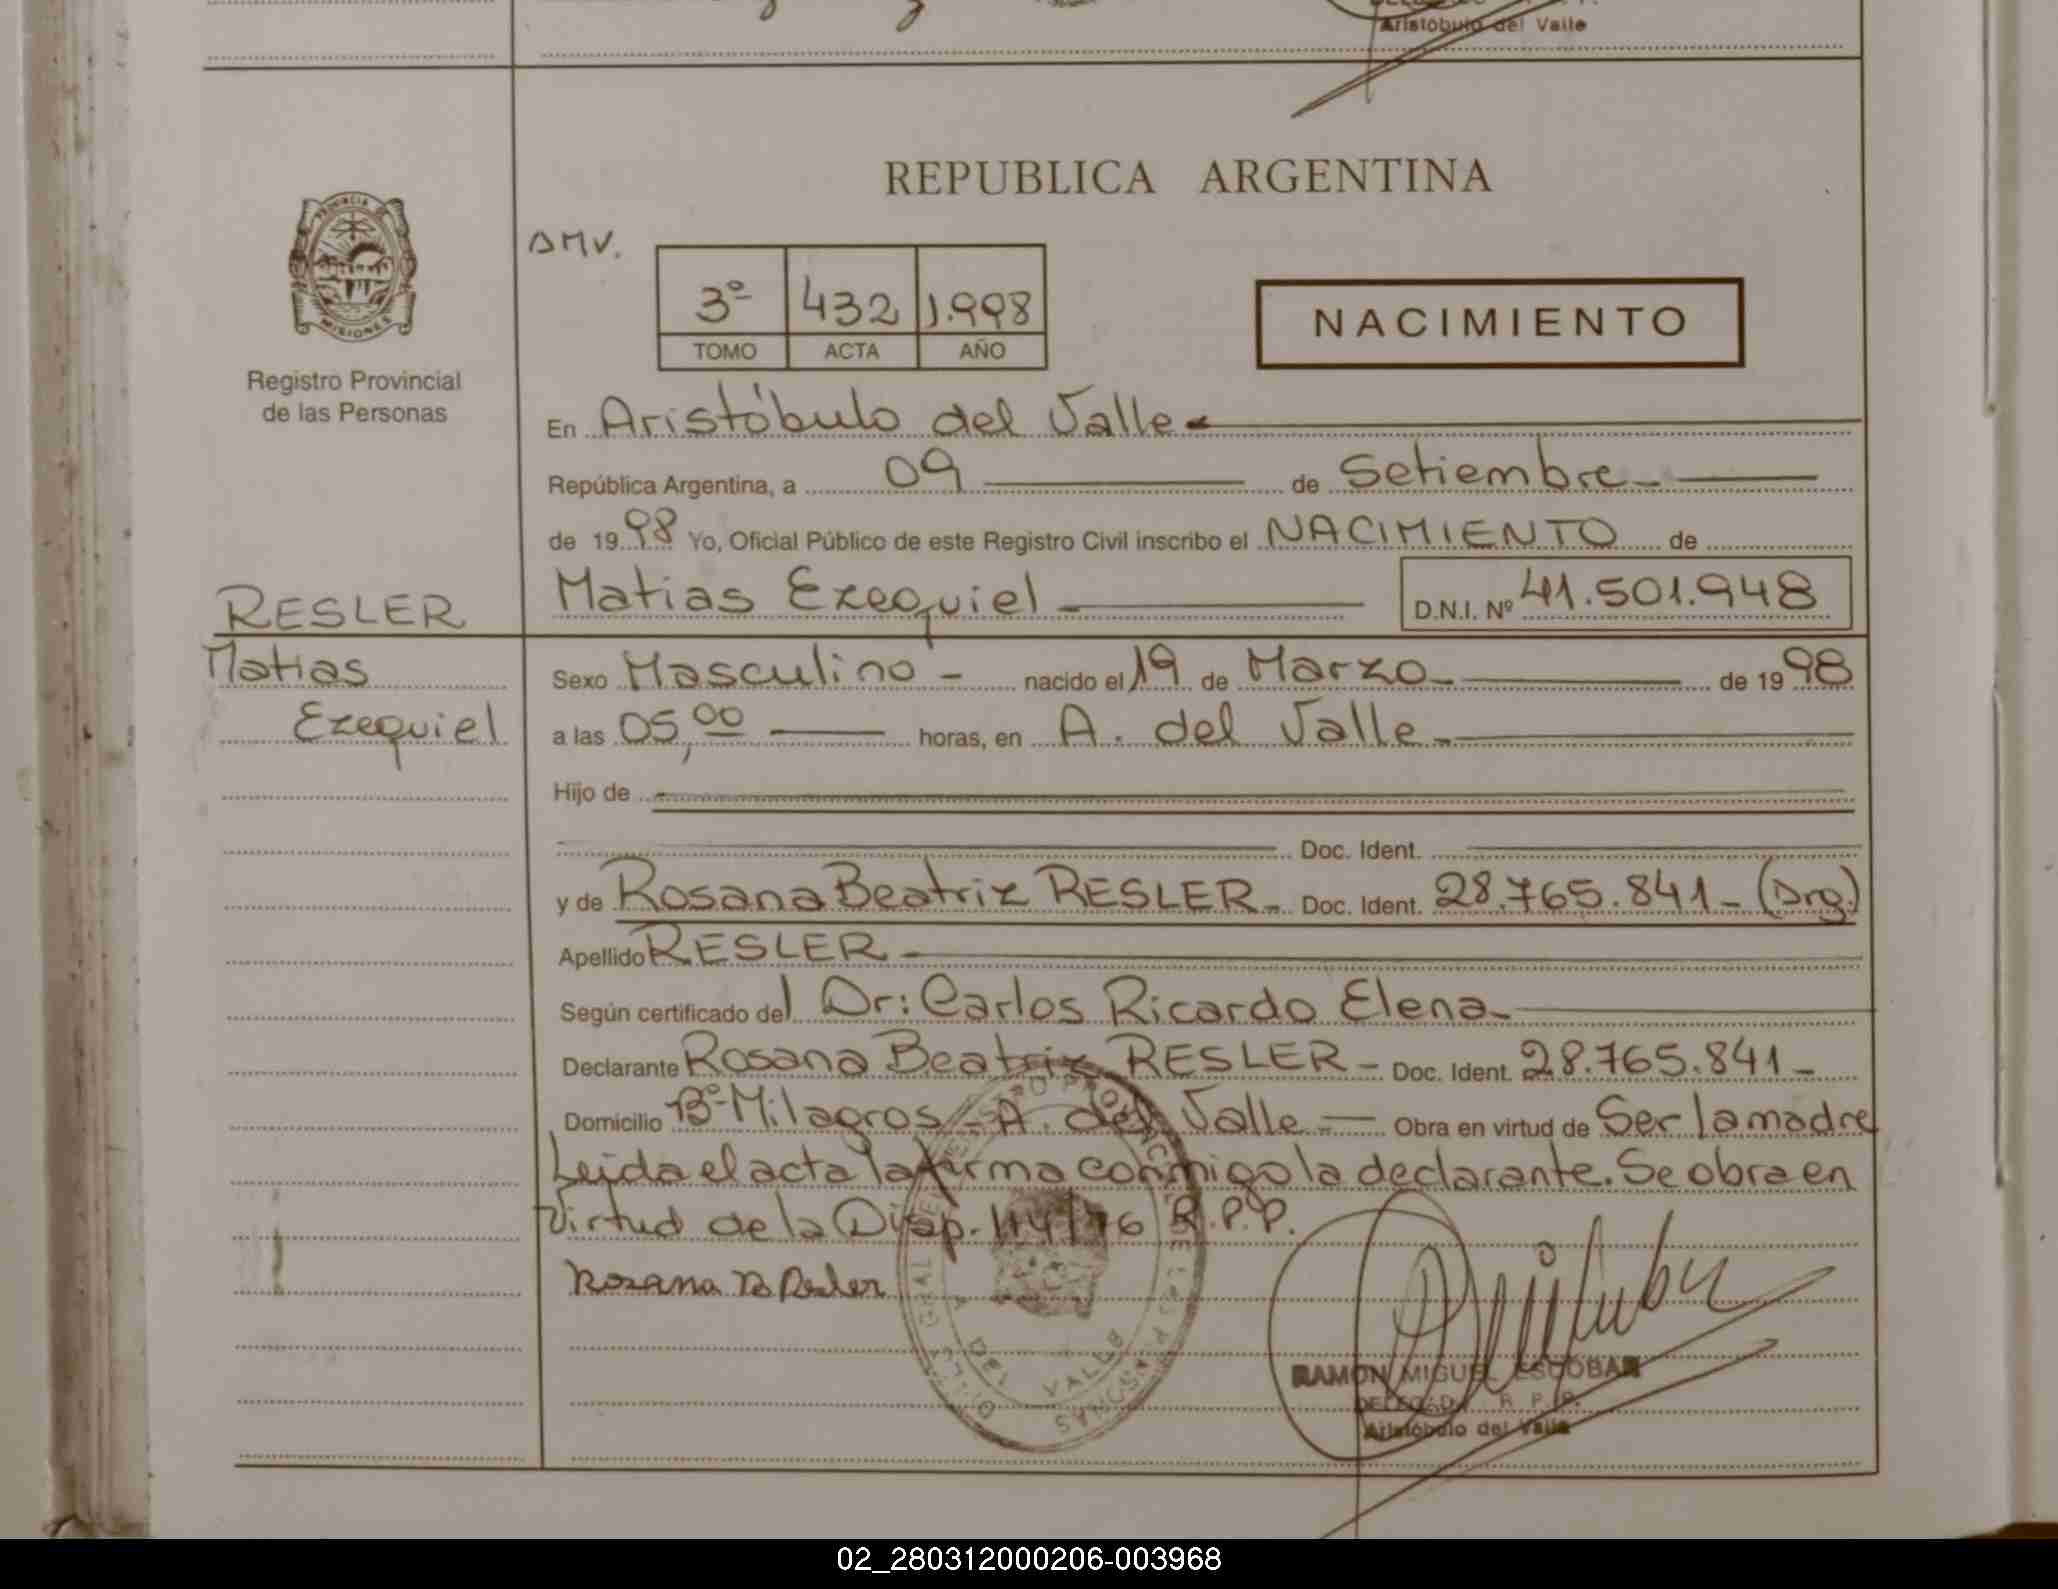 Aristóbulo del Valle
REPUBLICA ARGENTINA
PROVINCIA DE
MISIONES
Registro Provincial
de las Personas
DMV.
3º 432 1.998
TOMO ACTA AÑO
NACIMIENTO
En Aristóbulo del Valle
República Argentina, a 09 de Setiembre
de 1998 Yo, Oficial Público de este Registro Civil inscribo el NACIMIENTO de
RESLER
Matias Ezequiel D.N.I. Nº 41.501.948
Matias
Ezequiel
Sexo Masculino nacido el 19 de Marzo de 1998
a las 05,00 horas, en A. del Valle
Hijo de
Doc. Ident.
y de Rosana Beatriz RESLER Doc. Ident. 28.765.841 (Arg.)
Apellido RESLER
Según certificado del Dr: Carlos Ricardo Elena
Declarante Rosana Beatriz RESLER Doc. Ident. 28.765.841
Domicilio Bº Milagros - A. del Valle Obra en virtud de Ser la madre
Leida el acta la firma conmigo la declarante. Se obra en
Virtud de la Disp. 114/76 R.P.P.
Rosana B Resler
A. DEL VALLE
RAMON MIGUEL ESCOBAR
R. P. P.
Aristóbulo del Valle
02_280312000206-003968